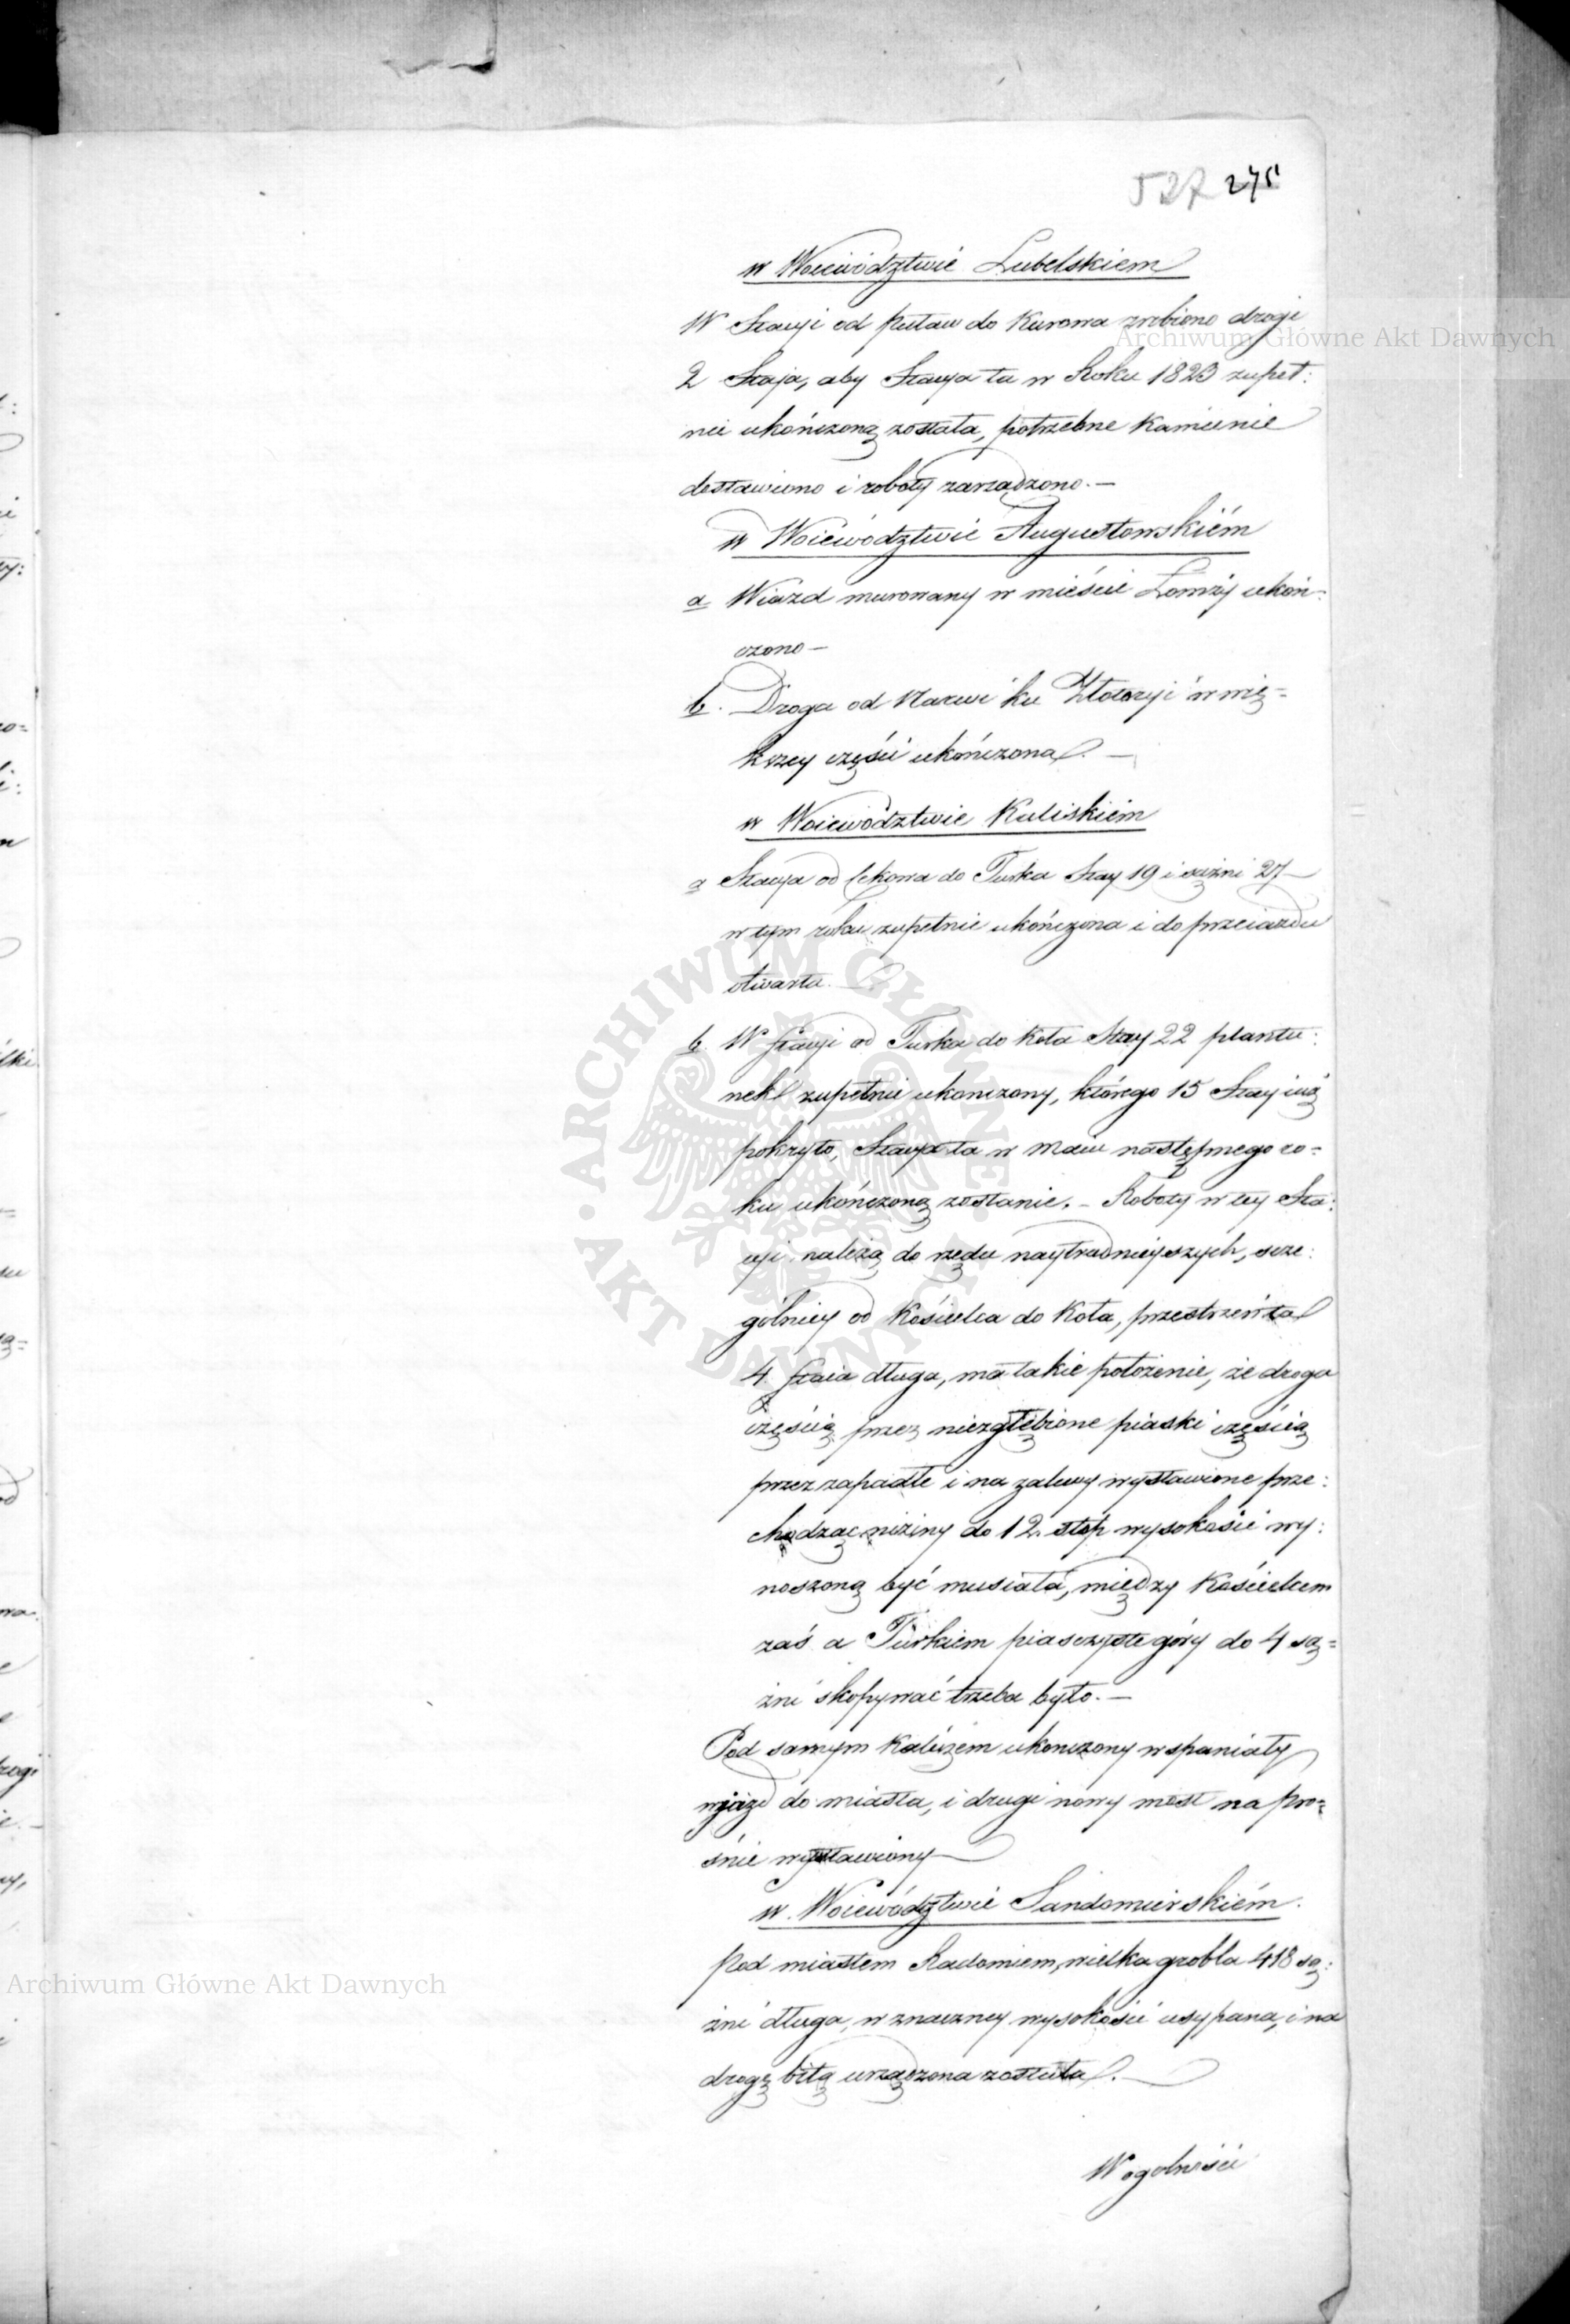 527 275
w Woiewództwie Lubelskiem
W Stacyi od Puław do Kurowa zrobiono drogi
2 Staja, aby Stacya ta w Roku 1823 zupeł:
nie ukończoną została, potrzebne kamienie
dostawiono i roboty zarządzono. —
w Woiewództwie Augustowskiém
a Wiazd murowany w mieście Łomży ukoń:
czono —
b. Droga od Narwi ku Złotoryi w wię=
kszey części ukończona. —
w Woiewództwie Kaliskiém
a Stacya od Cekowa do Turka Stay 19 i sążni 27 —
w tym roku zupełnie ukończona i do przeiazdu
otwarta.
b. W Stacyi od Turka do Koła Stay 22 plantu:
nek zupełnie ukonczony, którego 15 Stay iuż
pokryto, Stacya ta w Maiu następnego ro=
ku ukończoną zostanie. — Roboty w tey Sta:
cyi należą do rzędu naytrudnieyszych, scze:
gólniey od Kościelca do Koła, przestrzeń ta
4 Staia długa, ma takie położenie, że droga
częścią przez niezgłębione piaski częścią
przez zapadłe i na zalewy wystawione prze:
chodząc niziny do 12. stóp wysokości wy:
noszoną być musiała, między Kościelcem
zaś a Turkiem piasczyste góry do 4 są=
żni skopywać trzeba było. —
Pod samym Kaliszem ukonczony wspaniały
wjazd do miasta, i drugi nowy most na Pro=
śnie wystawiony —
w. Woiewództwie Sandomierskiém.
Pod miastem Radomiem, wielka grobla 418 są:
żni długa, w znaczney wysokości usypana, i na
drogę bitą urządzona została. —
W ogolności
Archiwum Główne Akt Dawnych
ARCHIWUM GŁÓWNE · AKT DAWNYCH ·
Archiwum Główne Akt Dawnych